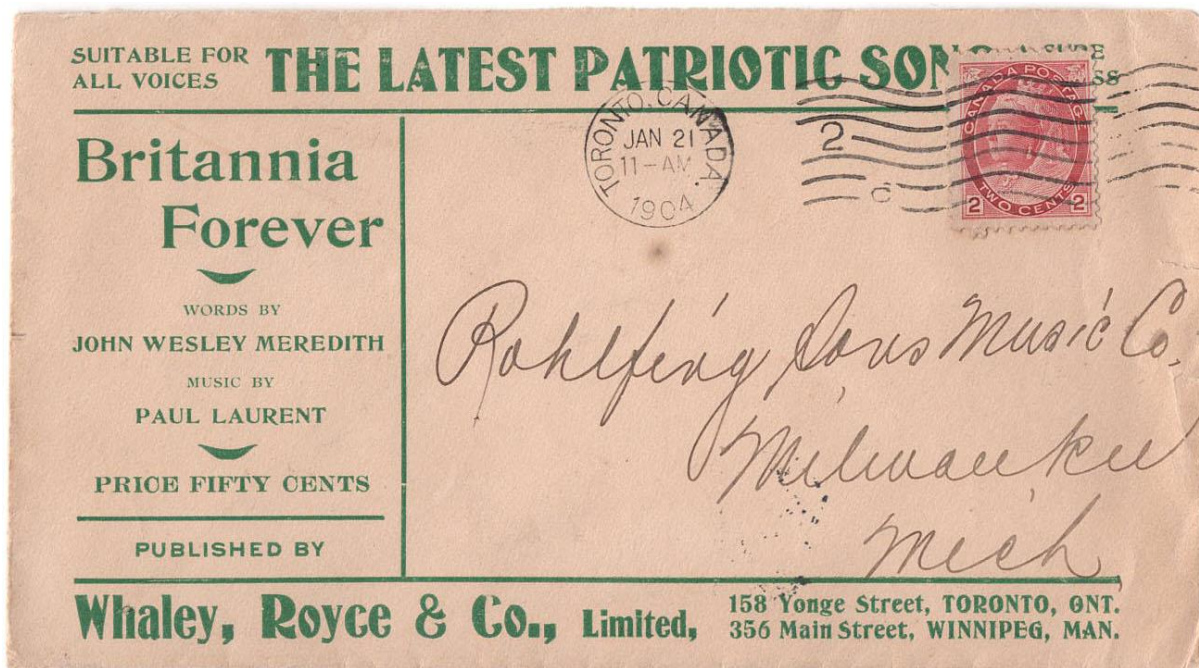 SUITABLE FOR
ALL VOICES
THE LATEST PATRIOTIC
Britannia
Forever
WORDS BY
JOHN WESLEY MEREDITH
MUSIC BY
PAUL LAURENT
PRICE FIFTY CENTS
PUBLISHED BY
TORONTO, CANADA.
JAN 21
11-AM
1904
2
C
CANADA POSTAG
2 TWO CENTS 2
Rohlfing Sons Music Co.
Milwaukee
Mich
Whaley, Royce & Co., Limited,
158 Yonge Street, TORONTO, ONT.
356 Main Street, WINNIPEG, MAN.